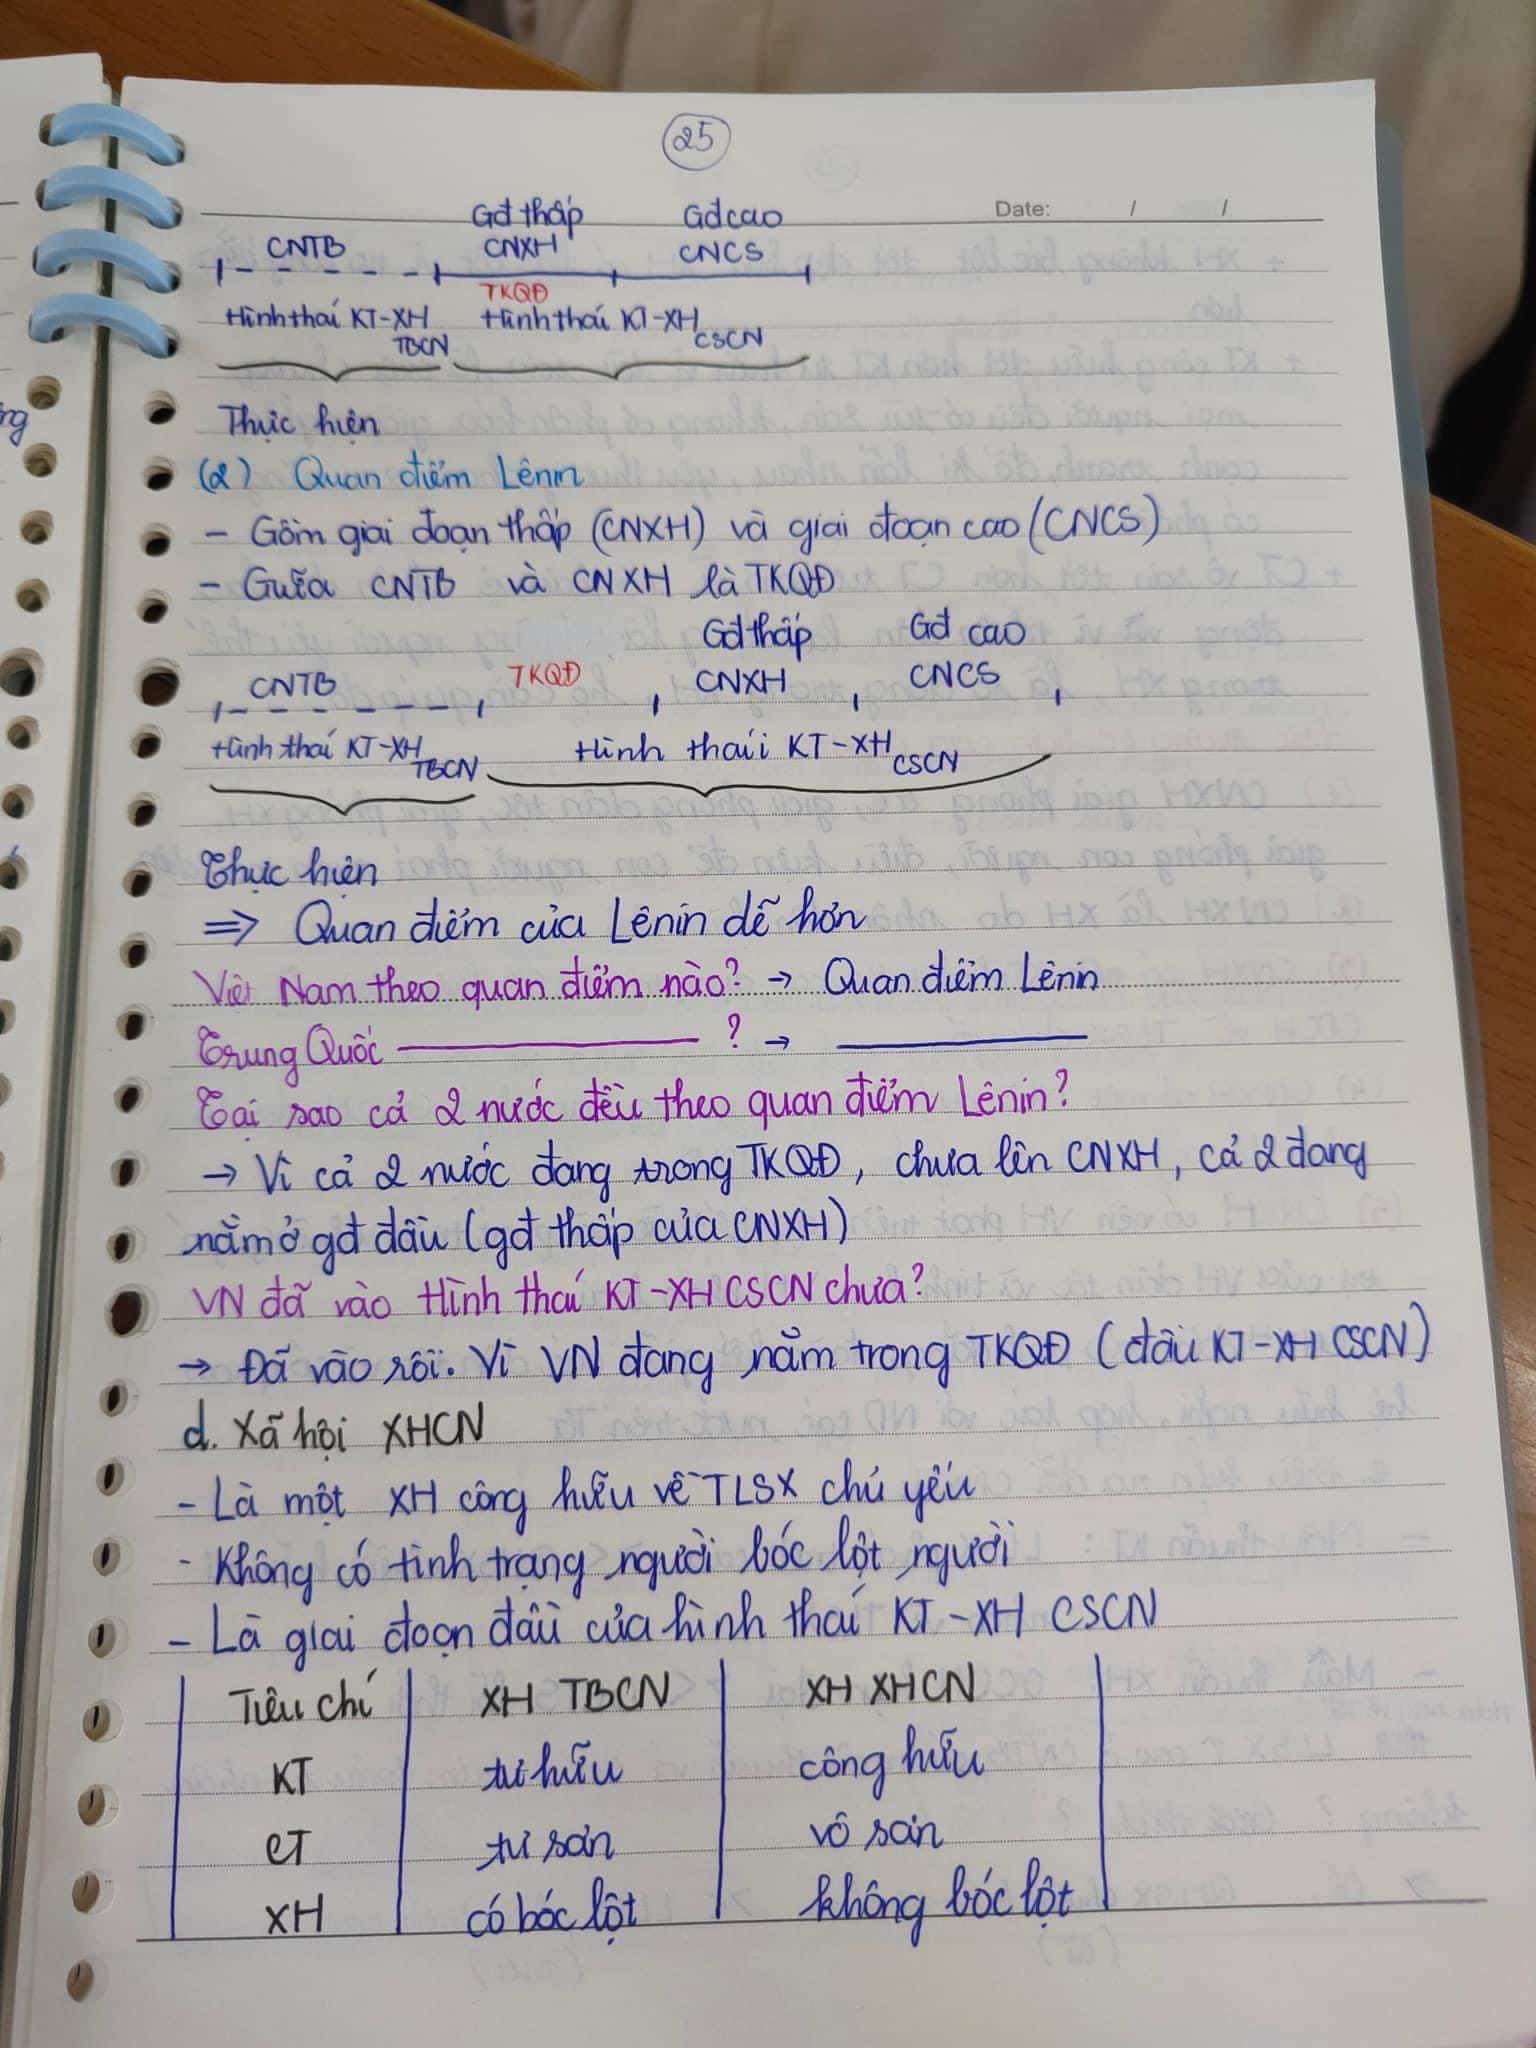 25
Date: / /
Gđ thấp Gđ cao
CNTB CNXH CNCS
TKQĐ
Hình thái KT-XH TBCN Hình thái KT-XH CSCN
Thực hiện
(2) Quan điểm Lênin
- Gồm giai đoạn thấp (CNXH) và giai đoạn cao (CNCS)
- Giữa CNTB và CNXH là TKQĐ
Gđ thấp Gđ cao
CNTB TKQĐ CNXH CNCS
Hình thái KT-XH TBCN Hình thái KT-XH CSCN
Thực hiện
⇒ Quan điểm của Lênin dễ hơn
Việt Nam theo quan điểm nào? → Quan điểm Lênin
Trung Quốc ——— ? → ———
Tại sao cả 2 nước đều theo quan điểm Lênin?
→ Vì cả 2 nước đang trong TKQĐ, chưa lên CNXH, cả 2 đang
nằm ở gđ đầu (gđ thấp của CNXH)
VN đã vào Hình thái KT-XH CSCN chưa?
→ Đã vào rồi. Vì VN đang nằm trong TKQĐ (đầu KT-XH CSCN)
d. Xã hội XHCN
- Là một XH công hữu về TLSX chủ yếu
- Không có tình trạng người bóc lột người
- Là giai đoạn đầu của hình thái KT-XH CSCN
Tiêu chí XH TBCN XH XHCN
KT tư hữu công hữu
CT tư sản vô sản
XH có bóc lột không bóc lột